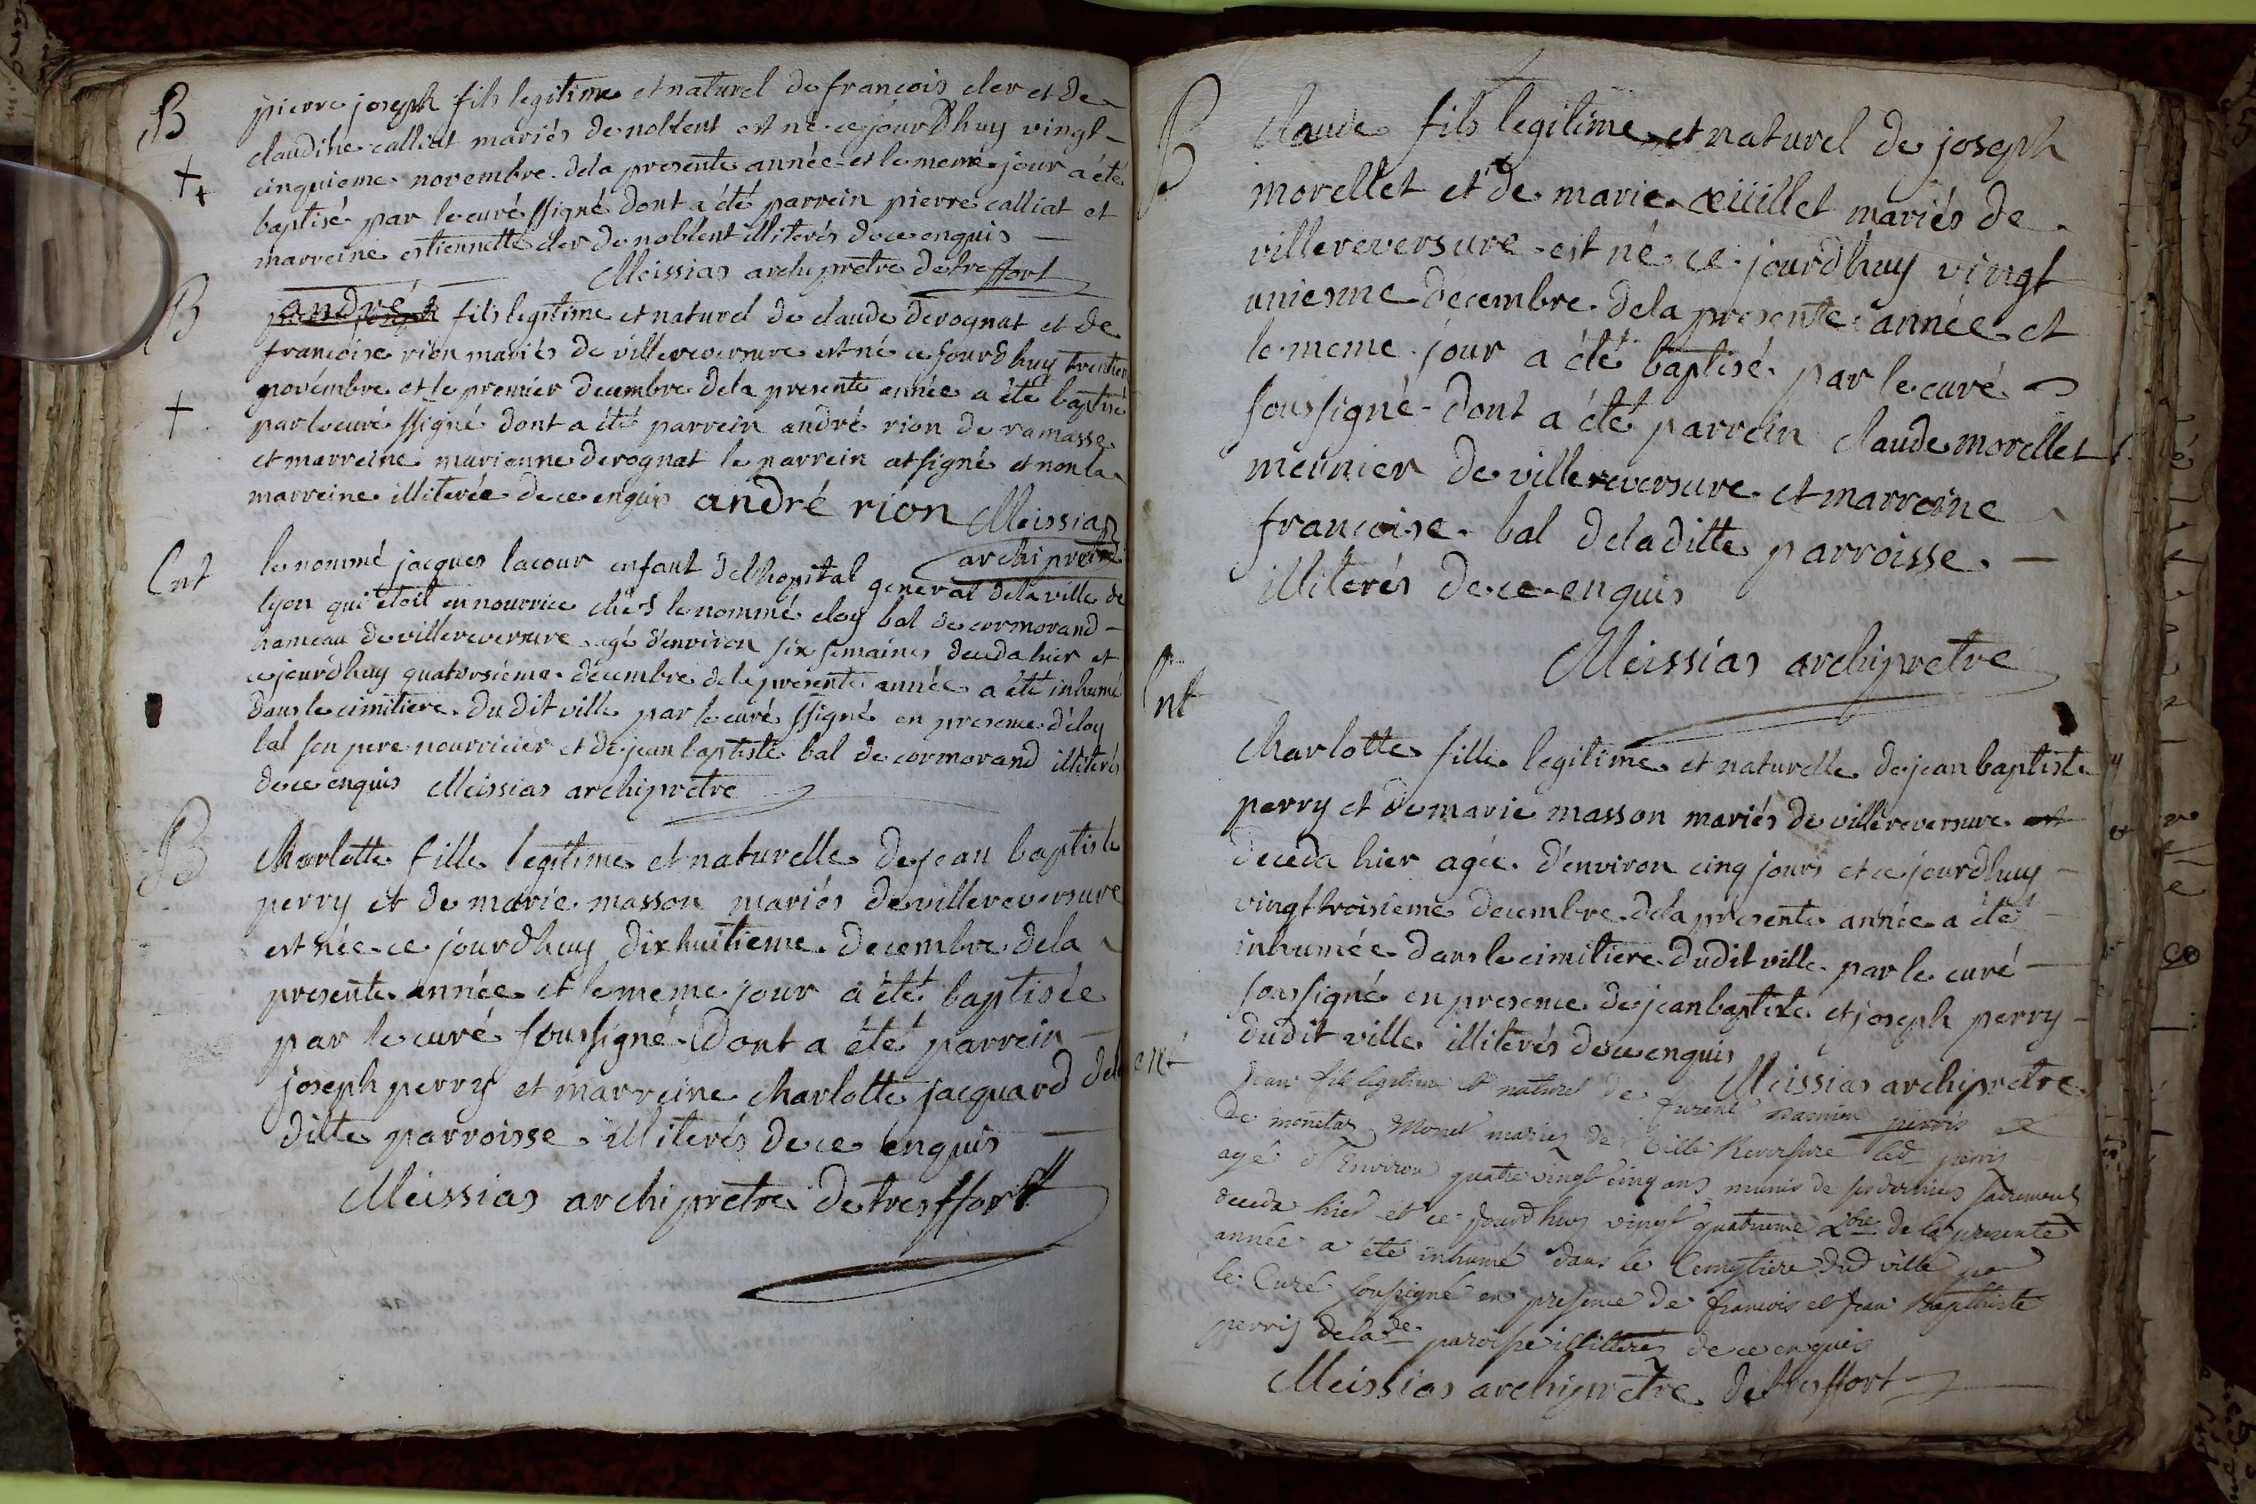 B
pierre joseph fils legitime et naturel de francois cler et de
claudine calliat mariés de noblent est né ce jourdhuy vingt
cinquieme novembre dela presente année et le meme jour a été
baptisé par le curé ssigné dont a été parrein pierre calliat et
marreine estiennette cler de noblent illiterés de ce enquis
Meissias archipretre de treffort
B
andré fils legitime et naturel de claude derognat et de
francoise rion mariés de villereversure est né ce jourdhuy trentieme
novembre et le premier decembre dela presente année a été baptisé
par le curé ssigné dont a été parrein andré rion de ramasse
et marreine marianne derognat le parrein at signé et non la
marreine illiterée de ce enquis andré rion Meissias
archipretre
Ent
le nommé jacques lacour enfant delhopital general dela ville de
lyon qui étoit en nourrice chés le nommé eloy bal de cormorand
hameau de villereversure agé d'environ six semaines deceda hier et
ce jourdhuy quatorsieme decembre dela presente année a été inhumé
dans le cimitiere du dit ville par le curé ssigné en presence d'eloy
bal son pere nourricier et de jean baptiste bal de cormorand illiterés
de ce enquis Meissias archipretre
B
Charlotte fille legitime et naturelle de jean baptiste
perry et de marie masson mariés de villereversure
est née ce jourdhuy dixhuitieme decembre dela
presente année et le meme jour a été baptisée
par le curé soussigné dont a été parrein
joseph perry et marreine charlotte jacquard dela
ditte parroisse illiterés de ce enquis
Meissias archipretre de treffort
B
Claude fils legitime et naturel de joseph
morellet et de marie œüillet mariés de
villereversure est né ce jourdhuy vingt
unienne decembre dela presente année et
le meme jour a été baptisé par le curé
soussigné dont a été parrein claude morellet
meunier de villereversure et marreine
francoise bal dela ditte parroisse
illiterés de ce enquis
Meissias archipretre
Ent
Charlotte fille legitime et naturelle de jean baptiste
perry et de marie masson mariés de villereversure
deceda hier agée d'environ cinq jours et ce jourdhuy
vingt troisieme decembre dela presente année a été
inhumée dans le cimitiere dudit ville par le curé
soussigné en presence de jean baptiste et joseph perry
dudit ville illiterés de ce enquis
Meissias archipretre
ent
Jean fils legitime et naturel de
de Monet mariez de Ville Reversure led perris
agé d'Environ quatre vingt cinq ans munis de ses derniers sacrements
deceda hier et ce jourdhuy vingt quatrieme Xbre de la presente
année a été inhumé dans le Cemytiere dud ville par
le Curé soussigné en presence de francois et Jean Baptiste
perris dela de paroisse illitterés de ce enquis
Meissias archipretre de treffort